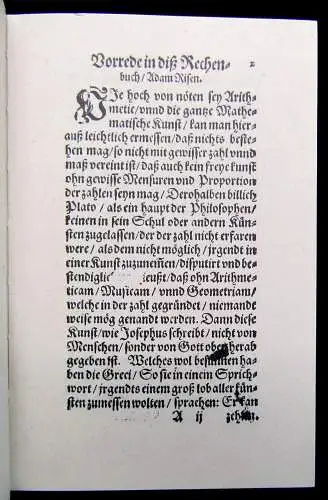 Vorrede in diß Rechen-
buch/Adam Risen. 2
WIe hoch von nöten sey Arith-
metic/vnnd die gantze Mathe-
matische Kunst/ kan man hier-
auß leichtlich ermessen/daß nichts beste-
hen mag/so nicht mit gewisser zahl vnnd
maß vereint ist/ daß auch kein freye kunst
ohn gewisse Mensuren vnd Proportion
der zahlen seyn mag/ Derohalben billich
Plato/ als ein haupt der Philosophen/
keinen in sein Schul oder andern Kün-
sten zugelassen/der der zahl nicht erfaren
were/ als dem nicht möglich/ jrgendt in
einer Kunst zuzunemen/disputirt vnd be-
stendiglic eußt/ daß ohn Arithme-
ticam/ Musicam/ vnnd Geometriam/
welche in der zahl gegründet/ niemandt
weise mög genandt werden. Dann diese
Kunst/wie Josephus schreibt/nicht von
Menschen/sonder von Gott oben herab
gegeben ist. Welches wol besunnen ha-
ben die Greci/ So sie in einem Sprich-
wort/ jrgendts einem groß lob aller kün-
sten zumessen wolten/ sprachen: Er kan
A ij zehlen.